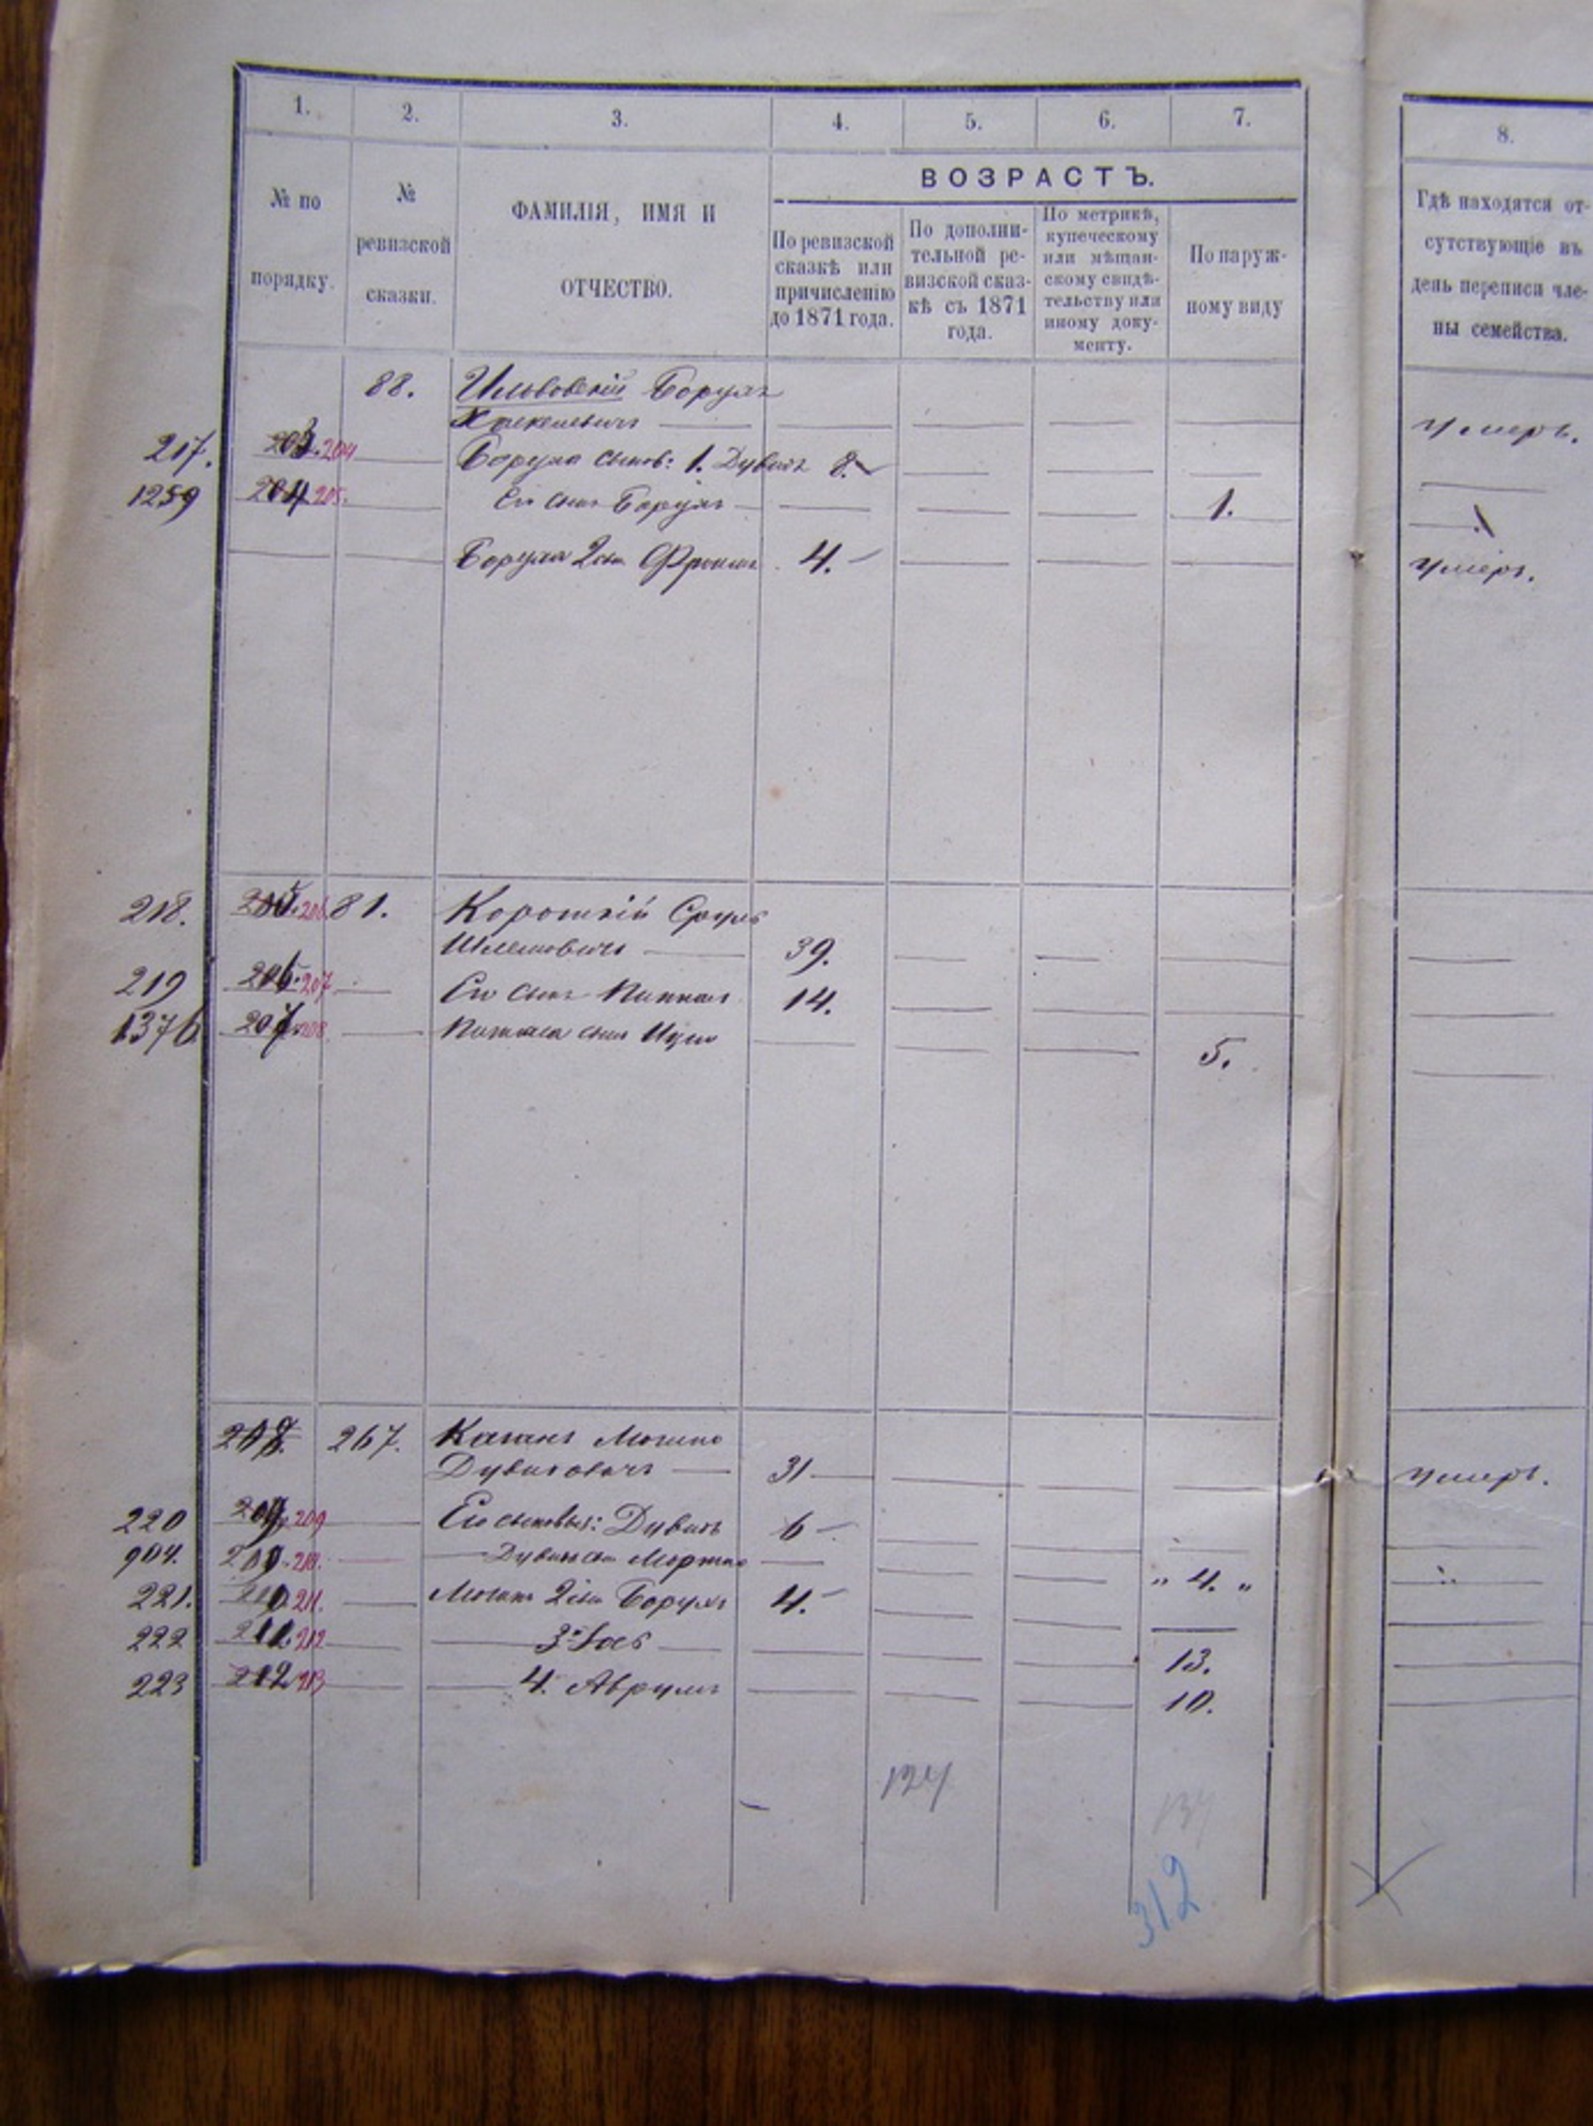 1. 2. 3. 4. 5. 6. 7. 8.
ВОЗРАСТЪ.
№ по порядку.
№ ревизской сказки.
ФАМИЛІЯ, ИМЯ И ОТЧЕСТВО.
По ревизской сказкѣ или причисленію до 1871 года.
По дополнительной ревизской сказкѣ съ 1871 года.
По метрикѣ, купеческому или мѣщанскому свидѣтельству или иному документу.
По наружному виду
Гдѣ находятся отсутствующіе въ день переписи члены семейства.
88. Борухъ
умеръ.
217. 203. 204 Боруха сынов: 1. Дувидъ 8.
1259 204 205. Его сынъ Борухъ 1.
Боруха 2 сын Фроимъ 4. умеръ.
218. 205. 206 81. Короткій Сруль
Шлемовичъ 39.
219 206. 207 Его сынъ Пинхас 14.
1376 207. 208. Пинхаса сынъ Ицко 5.
208. 267. Каганъ Мошко
Дувидовичъ 31 умеръ.
220 209 Его сыновья: Дувидъ 6
904. 210. Дувида сын Мортко " 4. "
221. 211. Мошка 2 сын Борухъ 4.
222 212 3. 13.
223 212 213 4. Аврумъ 10.
124
312